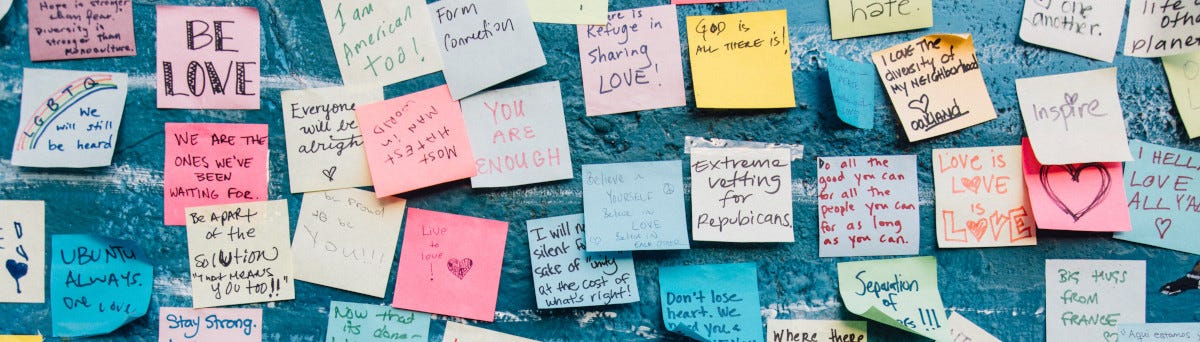 Hope is stronger
than fear.
Diversity is
stronger than
monoculture.
BE
LOVE
I am
American
too!
Form
Connection
Refuge in
Sharing
LOVE!
GOD is
ALL THERE IS!
hate.
one
another.
life
other
planets
LGBTQ
We
will still
be heard
WE ARE THE
ONES WE'VE
BEEN
WAITING FOR.
Everyone
will be
alright
MOST
HAPPIEST
MAN IN
WORLD
YOU
ARE
ENOUGH
I LOVE THE
diversity of
my NEIGHBORHOOD
oakland
Inspire
Believe in
YOURSELF
Believe in
LOVE
Believe in
EACH OTHER
Extreme
vetting
for
Repubicans.
Do all the
good you can
for all the
people you can
for as long
as you can.
LOVE IS
LOVE
IS
LOVE
I HELL
LOVE
ALL Y'A
UBUNTU
ALWAYS.
one love
Be APART
of the
SOLUTION
"That MEANS
YOU TOO!!"
be proud
to be
YOU!!!
Live
to
love
!
I will n
silent for
sake of "unity"
at the cost of
what's right!
Don't lose
heart. We
need you &
Separation
of
!!!
BIG HUGS
FROM
FRANCE
Aqui estamos
Stay Strong.
Now that
its done-
WHERE there